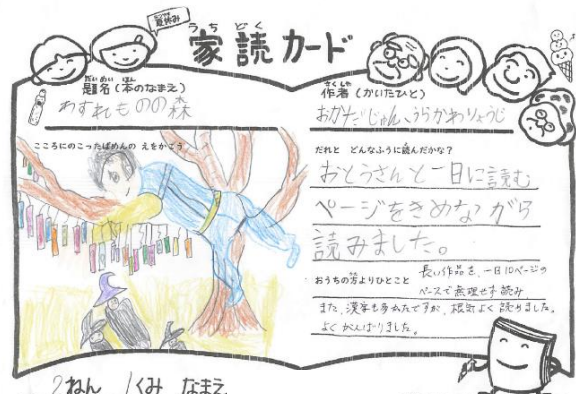 夏休み
うちどく
家読カード
だいめい ほん
題名(本のなまえ)
わすれものの森
さくしゃ
作者(かいたひと)
おかだじゅん、うらかわりょうじ
こころにのこったばめんの えをかこう
だれと どんなふうに読んだかな?
おとうさんと一日に読む
ページをきめながら
読みました。
おうちの方よりひとこと
長い作品を、一日10ページの
ペースで無理せず読み
また、漢字も多かったですが、根気よく読めました。
よくがんばりました。
2ねん 1くみ なまえ